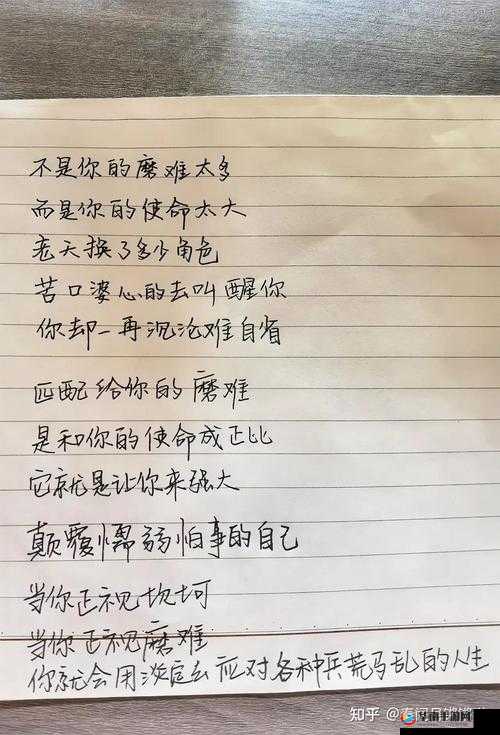 不是你的磨难太多
而是你的使命太大
老天换了多少角色
苦口婆心的去叫醒你
你却一再沉沦难自省
匹配给你的磨难
是和你的使命成正比
它就是让你来强大
颠覆懦弱怕事的自己
当你正视坎坷
当你正视磨难
你就会用淡定去应对各种兵荒马乱的人生
知乎